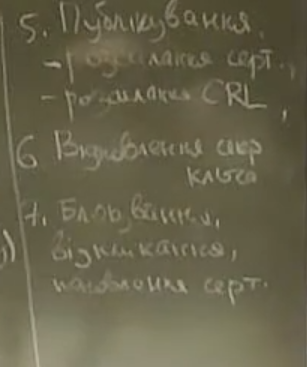 5. Публікування,
- розсилання серт.,
- розсилання CRL,
6 Відновлення секр
ключа
7. Блокування,
відкликання,
поновлення серт.